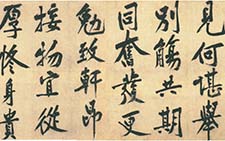 見何堪舉
別觴共期
同奮發更
勉致軒昂
接物宜從
厚𢚩身貴